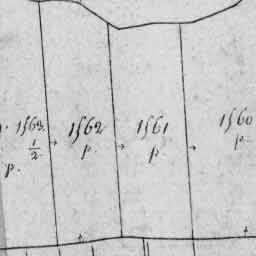 1563.
1/2
p.
1562
p.
1561
p
1560
p.